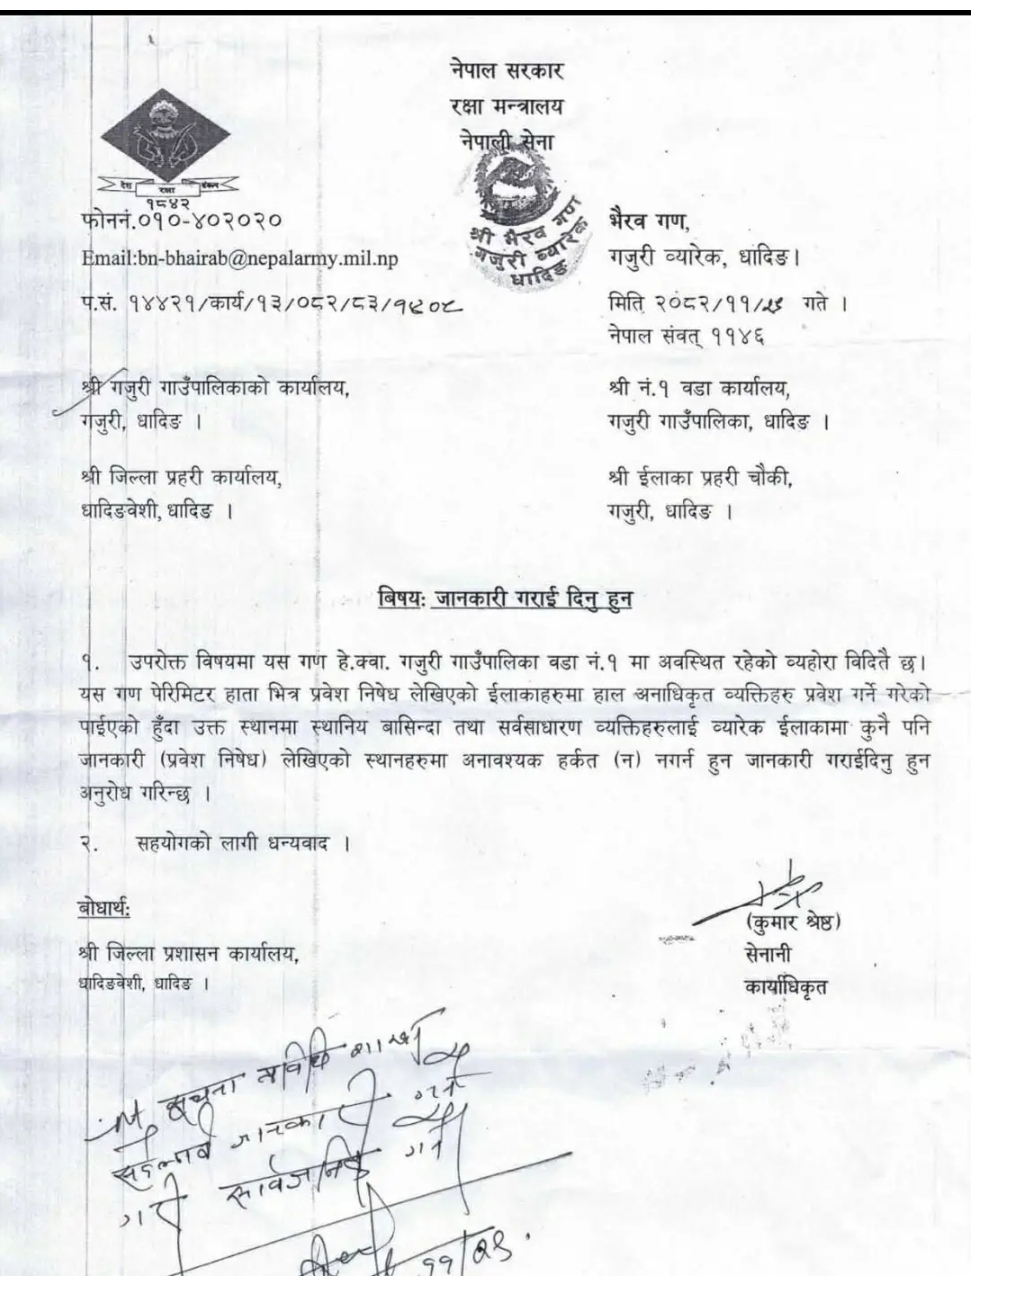 नेपाल सरकार
रक्षा मन्त्रालय
नेपाली सेना
देश रक्षा
१८४२
श्री भैरव गण
गजुरी ब्यारेक
धादिङ
फोननं.०१०-४०२०२०
भैरव गण,
Email:bn-bhairab@nepalarmy.mil.np
गजुरी ब्यारेक, धादिङ।
प.सं. १४४२१/कार्य/१३/०८२/८३/
मिति २०८२/११/ गते ।
नेपाल संवत् ११४६
श्री गजुरी गाउँपालिकाको कार्यालय,
गजुरी, धादिङ ।
श्री नं.१ वडा कार्यालय,
गजुरी गाउँपालिका, धादिङ ।
श्री जिल्ला प्रहरी कार्यालय,
धादिङवेशी, धादिङ ।
श्री ईलाका प्रहरी चौकी,
गजुरी, धादिङ ।
बिषय: जानकारी गराई दिनु हुन
१. उपरोक्त विषयमा यस गण हे.क्वा. गजुरी गाउँपालिका वडा नं.१ मा अवस्थित रहेको व्यहोरा विदितै छ।
यस गण पेरिमिटर हाता भित्र प्रवेश निषेध लेखिएको ईलाकाहरुमा हाल अनाधिकृत व्यक्तिहरु प्रवेश गर्ने गरेको
पाईएको हुँदा उक्त स्थानमा स्थानिय बासिन्दा तथा सर्वसाधारण व्यक्तिहरुलाई ब्यारेक ईलाकामा कुनै पनि
जानकारी (प्रवेश निषेध) लेखिएको स्थानहरुमा अनावश्यक हर्कत (न) नगर्न हुन जानकारी गराईदिनु हुन
अनुरोध गरिन्छ ।
२. सहयोगको लागी धन्यवाद ।
(कुमार श्रेष्ठ)
सेनानी
कार्याधिकृत
बोधार्थ:
श्री जिल्ला प्रशासन कार्यालय,
धादिङवेशी, धादिङ ।
सूचना प्रविधि
जानकारी
गरी सार्वजनिक गर्ने